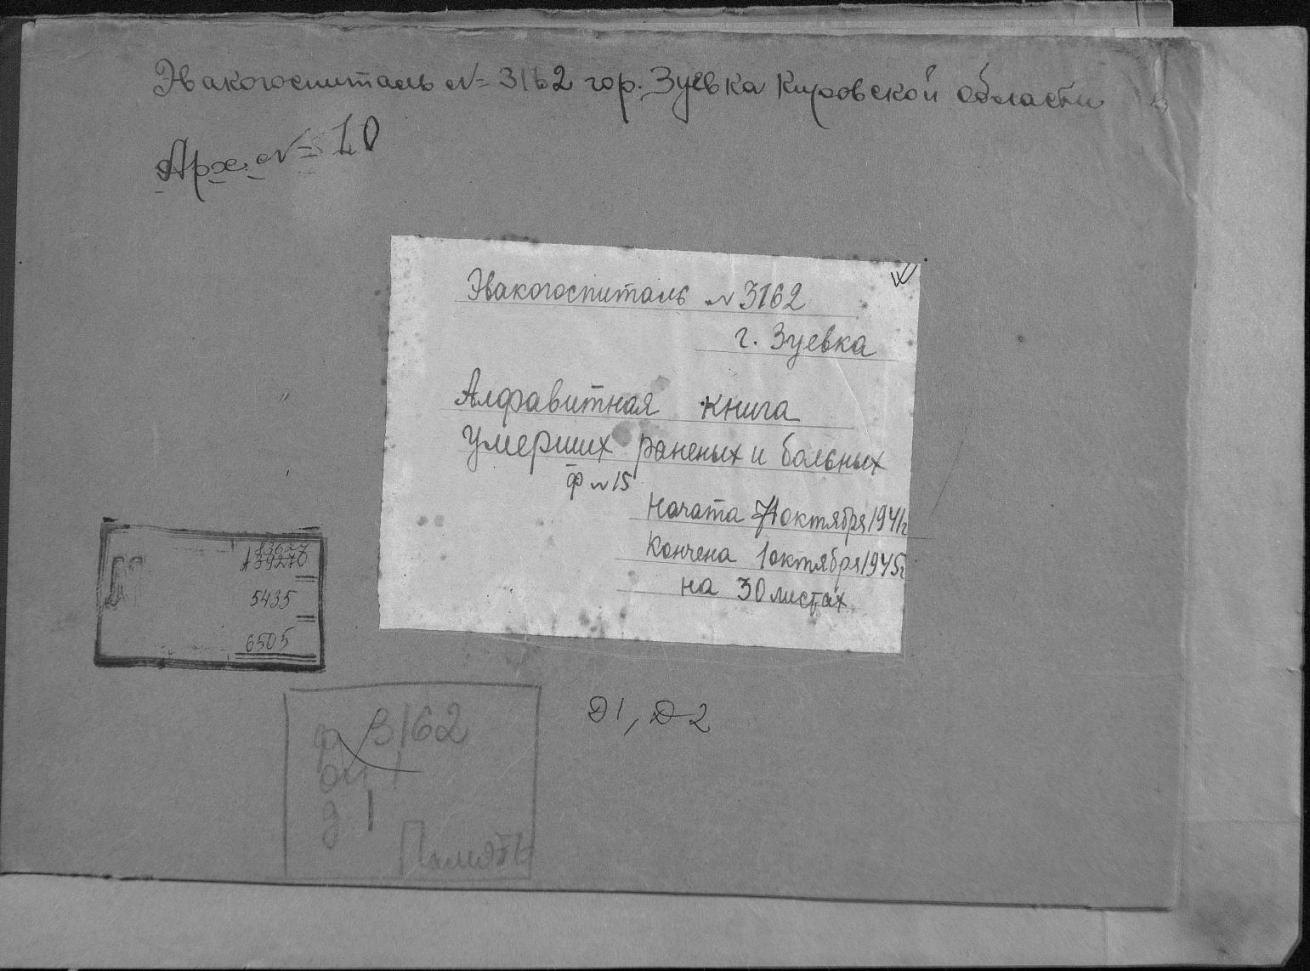 Эвакогоспиталь №= 3162 гор. Зуевка Кировской области
Арх. №= 10
Эвакогоспиталь № 3162
г. Зуевка
Алфавитная книга
умерших раненых и больных
ф № 15
Начата октября 1941г
Кончена 1 октября 1945г
на 30 листах
5435
6505
Д1, Д-2
ф 3162
оп 1
д 1
Память